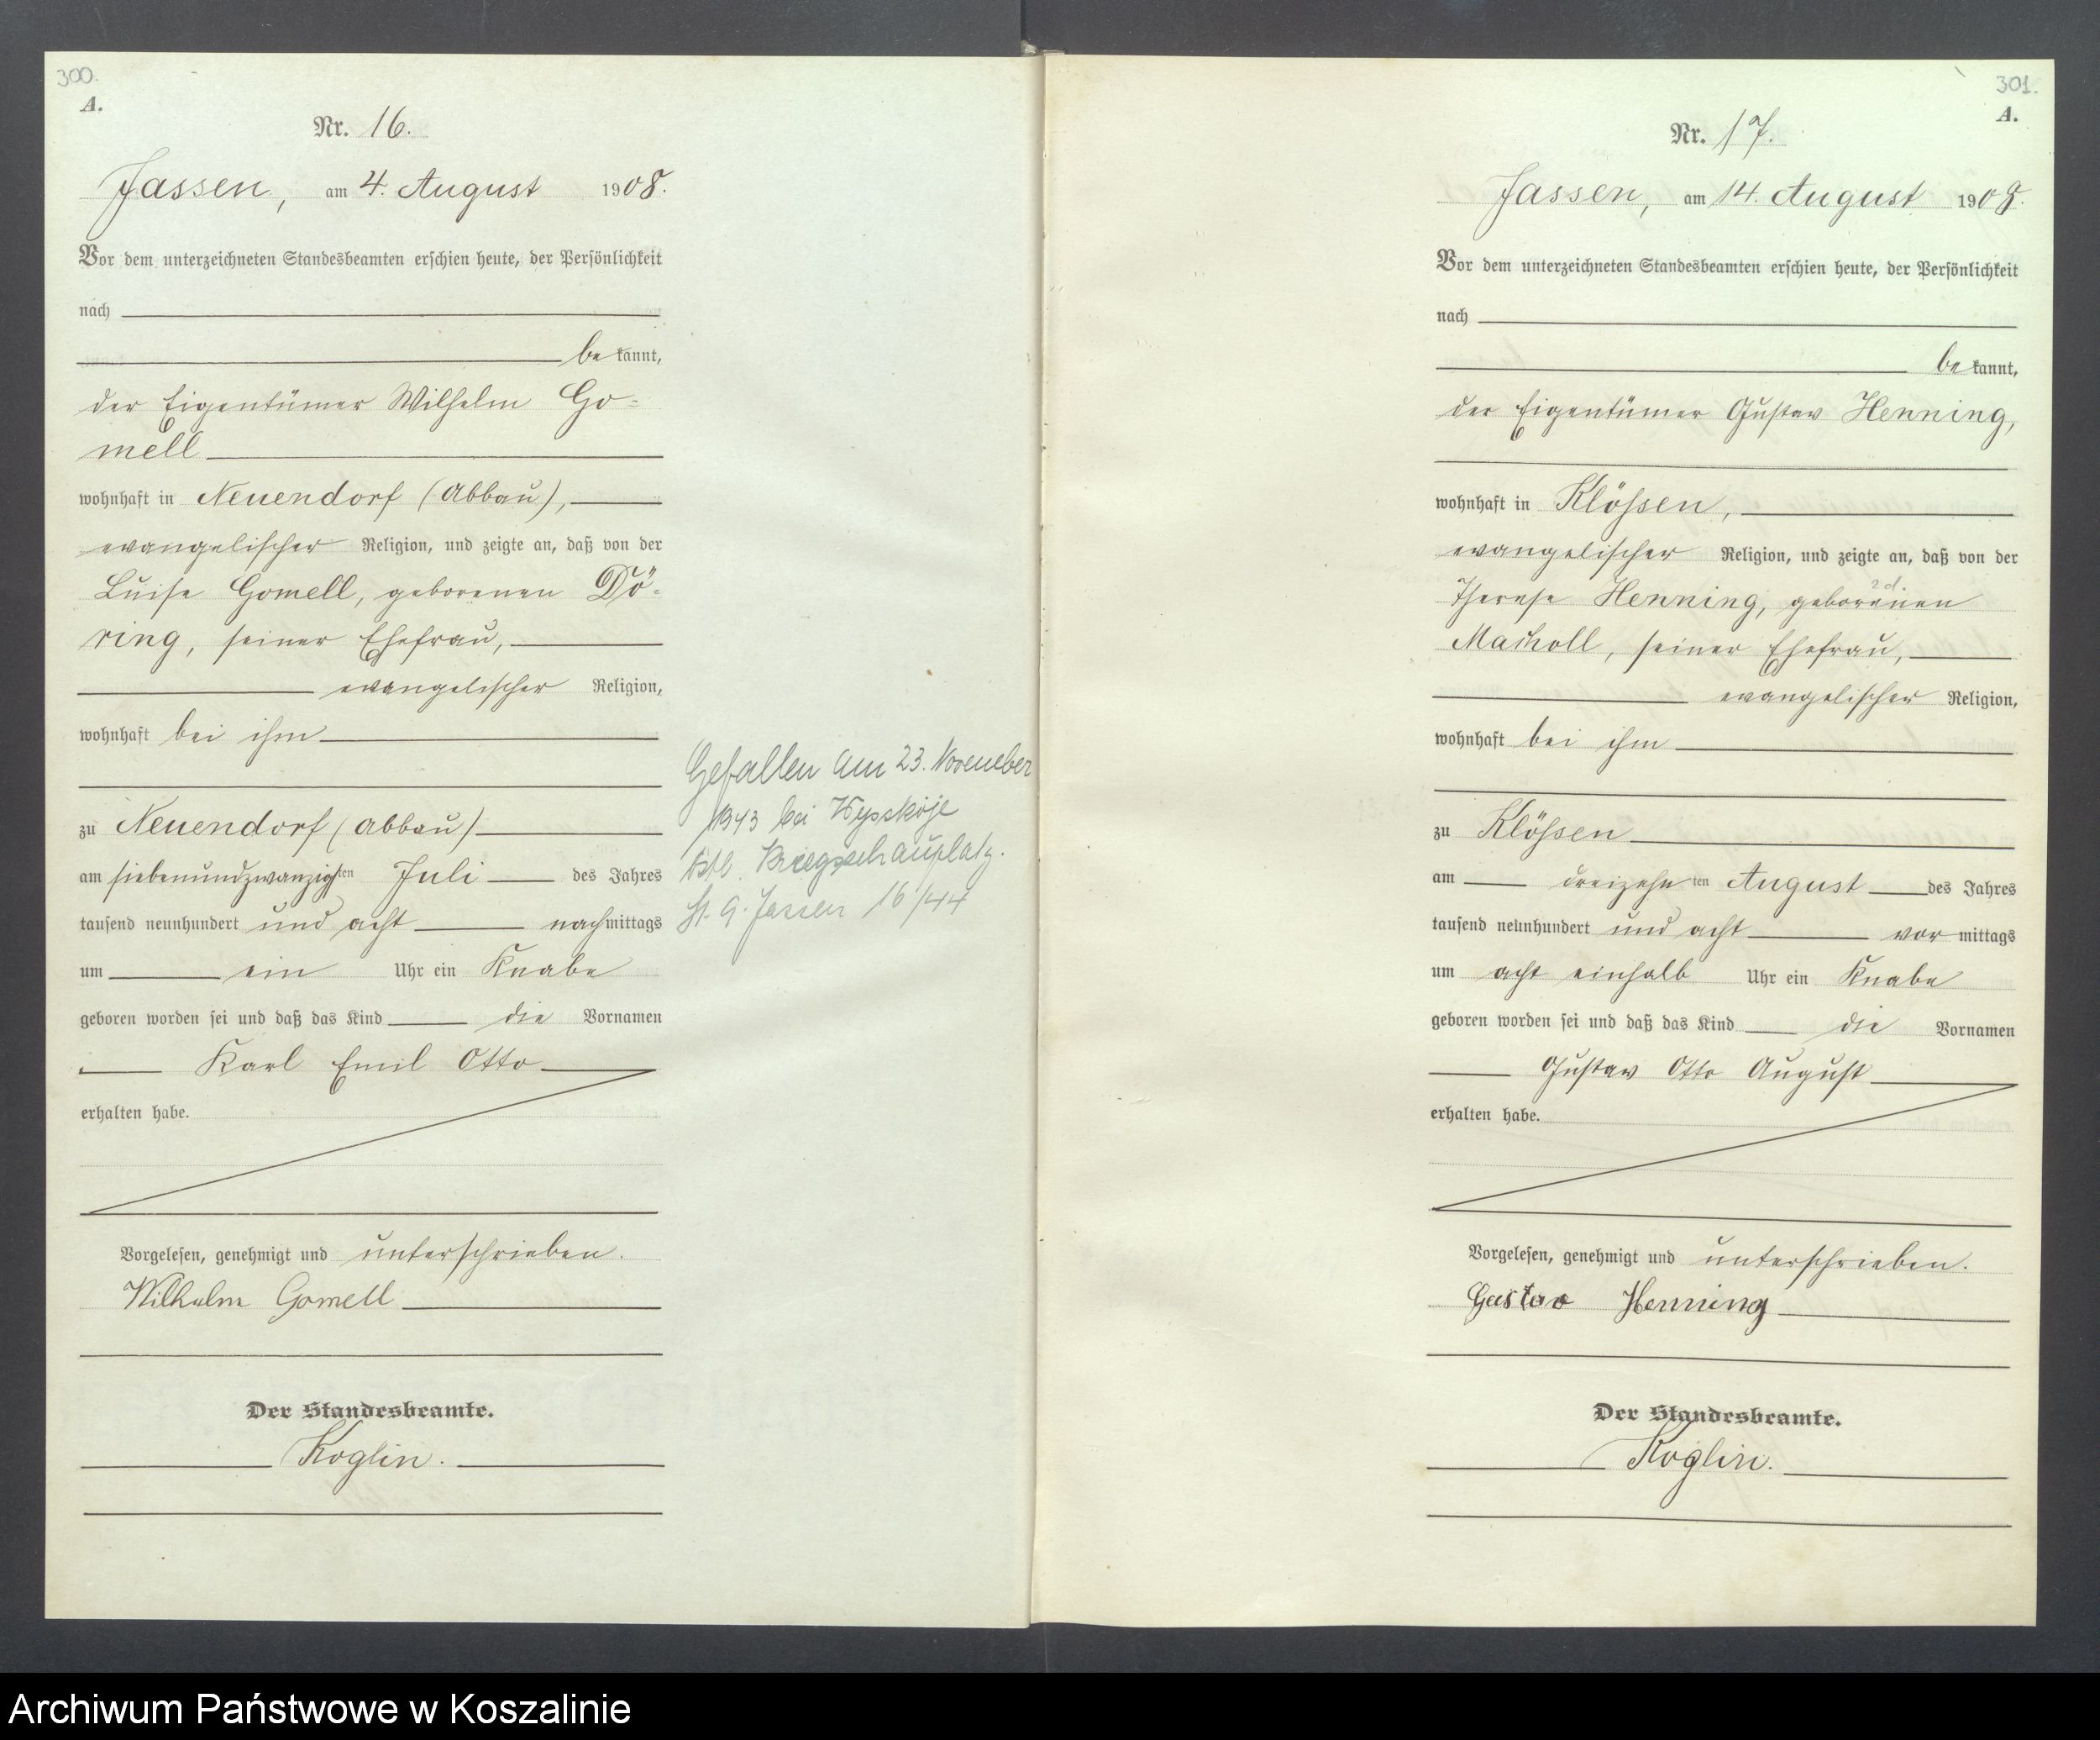 300.
A.
Nr. 16.
Jassen, am 4. August 1908.
Vor dem unterzeichneten Standesbeamten erschien heute, der Persönlichkeit
nach
be kannt,
der Eigentümer Wilhelm Go=
mell
wohnhaft in Neuendorf (Abbau),
evangelischer Religion, und zeigte an, daß von der
Luise Gomell, geborenen Dö=
ring, seiner Ehefrau,
evangelischer Religion,
wohnhaft bei ihm
zu Neuendorf (Abbau)
am siebenundzwanzigsten Juli des Jahres
tausend neunhundert und acht nachmittags
um ein Uhr ein Knabe
geboren worden sei und daß das Kind die Vornamen
Karl Emil Otto
erhalten habe.
Vorgelesen, genehmigt und unterschrieben.
Wilhelm Gomell
Der Standesbeamte.
Koglin.
Gefallen am 23. November
1943 bei Wysskoje
östl. Kriegsschauplatz.
St. A. Jassen 16/44
301.
A.
Nr. 17.
Jassen, am 14. August 1908.
Vor dem unterzeichneten Standesbeamten erschien heute, der Persönlichkeit
nach
be kannt,
der Eigentümer Gustav Henning,
wohnhaft in Klößen,
evangelischer Religion, und zeigte an, daß von der
Therese Henning, geborenen
seiner Ehefrau,
evangelischer Religion,
wohnhaft bei ihm
zu Klößen
am dreizehnten August des Jahres
tausend neunhundert und acht vormittags
um acht einhalb Uhr ein Knabe
geboren worden sei und daß das Kind die Vornamen
Gustav Otto August
erhalten habe.
Vorgelesen, genehmigt und unterschrieben.
Gustav Henning
Der Standesbeamte.
Koglin.
Archiwum Państwowe w Koszalinie